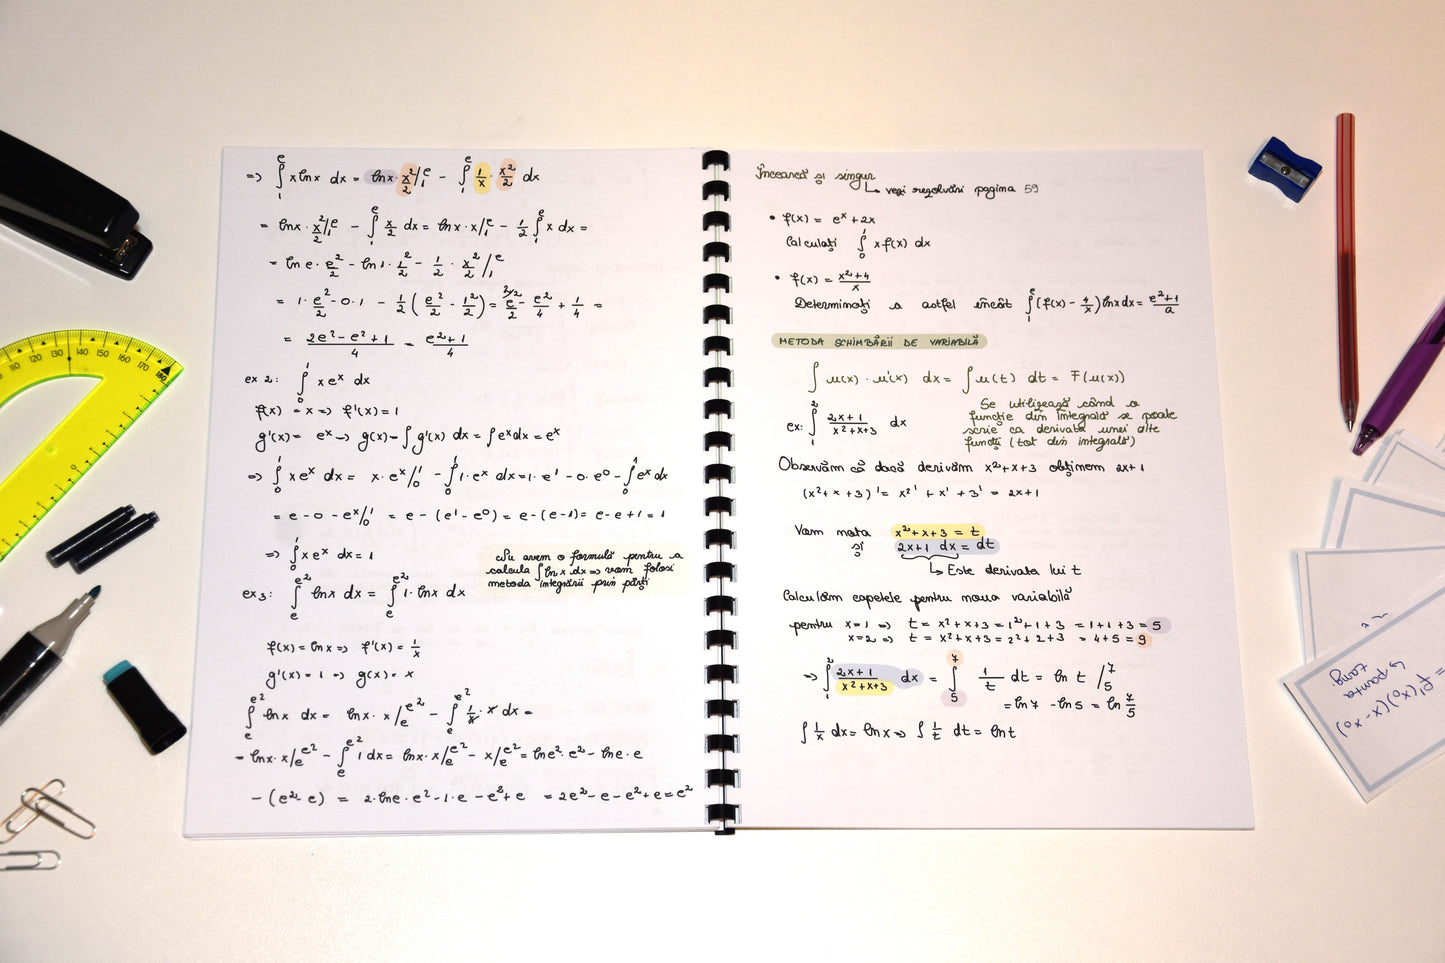 => ∫₁ᵉ x ln x dx = ln x · x²/2 |₁ᵉ - ∫₁ᵉ 1/x · x²/2 dx
= ln x · x²/2 |₁ᵉ - ∫₁ᵉ x/2 dx = ln x · x |₁ᵉ - 1/2 ∫₁ᵉ x dx =
= ln e · e²/2 - ln 1 · 1²/2 - 1/2 · x²/2 |₁ᵉ
= 1 · e²/2 - 0 · 1 - 1/2 (e²/2 - 1²/2) = e²/2 - e²/4 + 1/4 =
= (2e² - e² + 1)/4 = (e² + 1)/4
ex 2: ∫₀¹ x eˣ dx
f(x) = x => f'(x) = 1
g'(x) = eˣ => g(x) = ∫ g'(x) dx = ∫ eˣ dx = eˣ
=> ∫₀¹ x eˣ dx = x · eˣ |₀¹ - ∫₀¹ 1 · eˣ dx = 1 · e¹ - 0 · e⁰ - ∫₀¹ eˣ dx
= e - 0 - eˣ |₀¹ = e - (e¹ - e⁰) = e - (e - 1) = e - e + 1 = 1
=> ∫₀¹ x eˣ dx = 1
Nu avem o formulă pentru a
calcula ∫ ln x dx => vom folosi
metoda integrării prin părți
ex 3: ∫ₑ^e² ln x dx = ∫ₑ^e² 1 · ln x dx
f(x) = ln x => f'(x) = 1/x
g'(x) = 1 => g(x) = x
∫ₑ^e² ln x dx = ln x · x |ₑ^e² - ∫ₑ^e² 1/x · x dx =
= ln x · x |ₑ^e² - ∫ₑ^e² 1 dx = ln x · x |ₑ^e² - x |ₑ^e² = ln e² · e² - ln e · e
- (e² - e) = 2 · ln e · e² - 1 · e - e² + e = 2e² - e - e² + e = e²
Încearcă și singur
↳ vezi rezolvări pagina 59
• f(x) = eˣ + 2x
Calculați ∫₀¹ x f(x) dx
• f(x) = (x² + 4)/x
Determinați a astfel încât ∫₁ᵉ (f(x) - 4/x) ln x dx = (e² + 1)/a
METODA SCHIMBĂRII DE VARIABILĂ
∫ u(x) · u'(x) dx = ∫ u(t) dt = F(u(x))
Se utilizează când o
funcție din integrală se poate
scrie ca derivata unei alte
funcți (tot din integrală)
ex: ∫₁² (2x + 1)/(x² + x + 3) dx
Observăm că dacă derivăm x² + x + 3 obținem 2x + 1
(x² + x + 3)' = x²' + x' + 3' = 2x + 1
Vom nota x² + x + 3 = t
și 2x + 1 dx = dt
↳ Este derivata lui t
Calculăm capetele pentru noua variabilă
pentru x = 1 => t = x² + x + 3 = 1² + 1 + 3 = 1 + 1 + 3 = 5
x = 2 => t = x² + x + 3 = 2² + 2 + 3 = 4 + 5 = 9
=> ∫₁² (2x + 1)/(x² + x + 3) dx = ∫₅⁷ 1/t dt = ln t |₅⁷
= ln 7 - ln 5 = ln 7/5
∫ 1/x dx = ln x => ∫ 1/t dt = ln t
10 120 130 140 150 160 170 180
f'(x₀)(x - x₀)
↳ panta
tang.